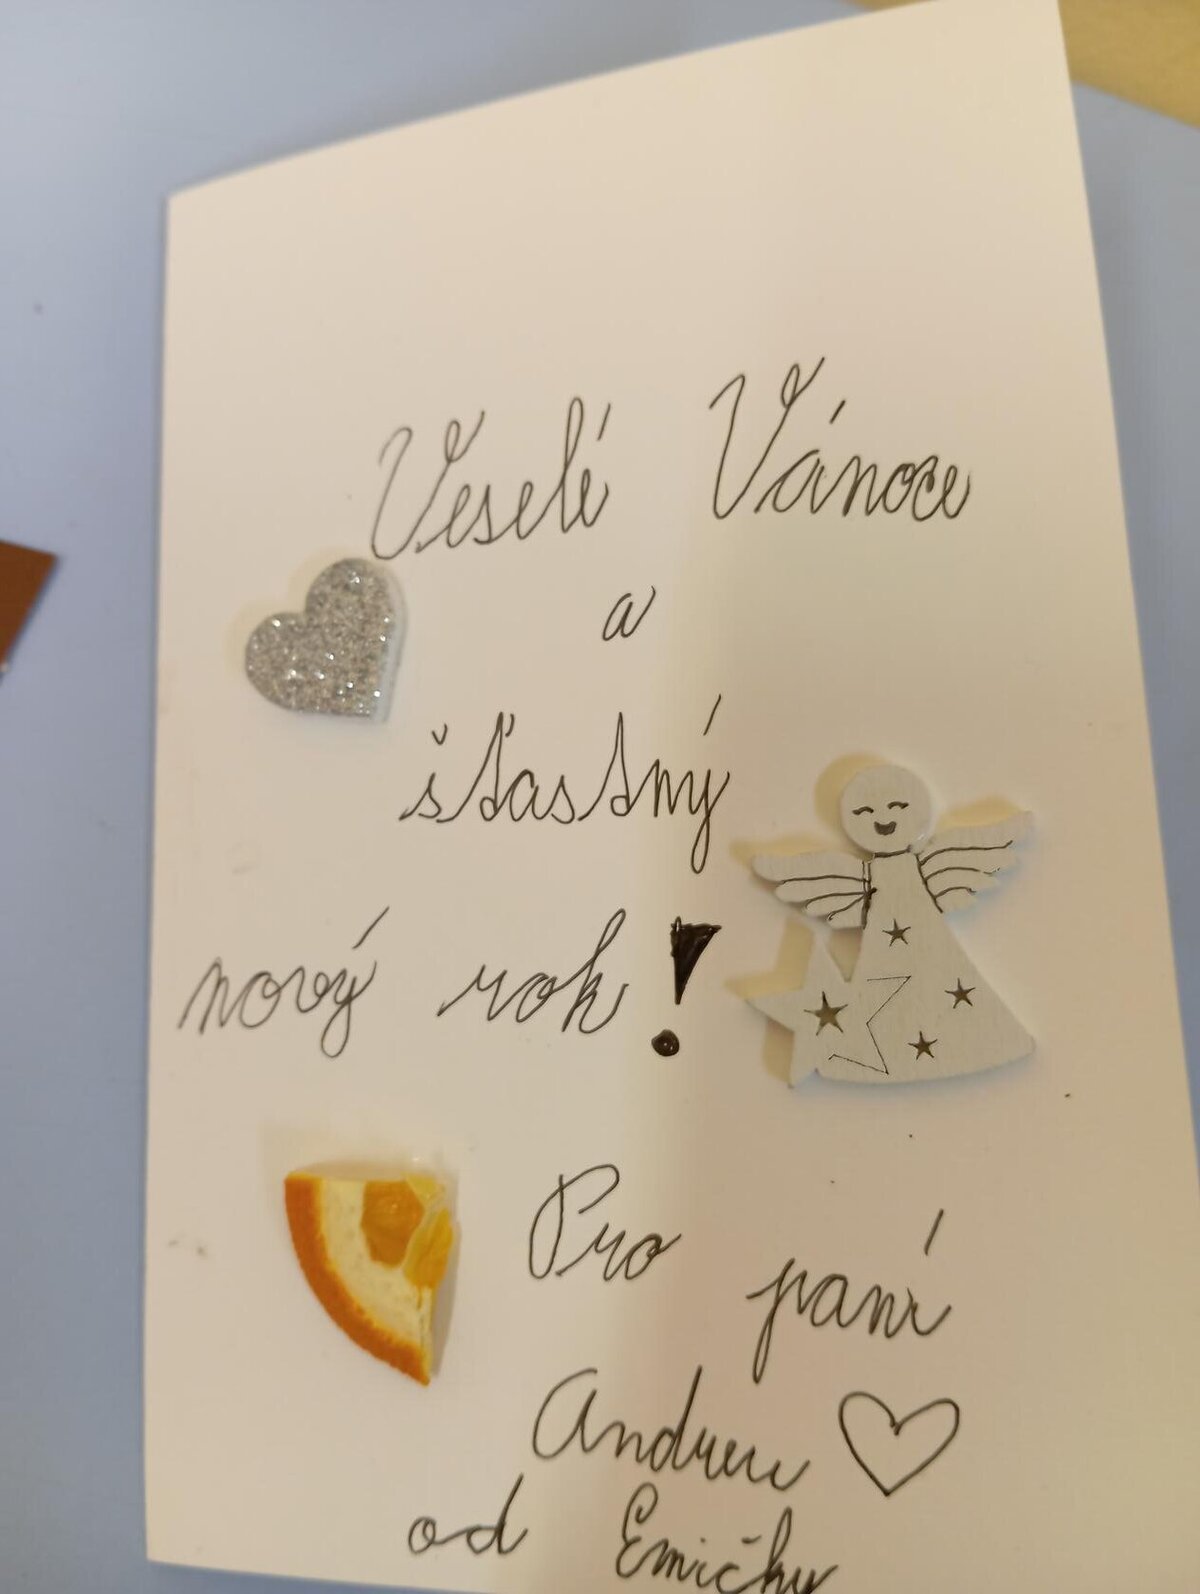 Veselé Vánoce
a
šťastný
nový rok!
Pro paní
Andreu
od Emičky